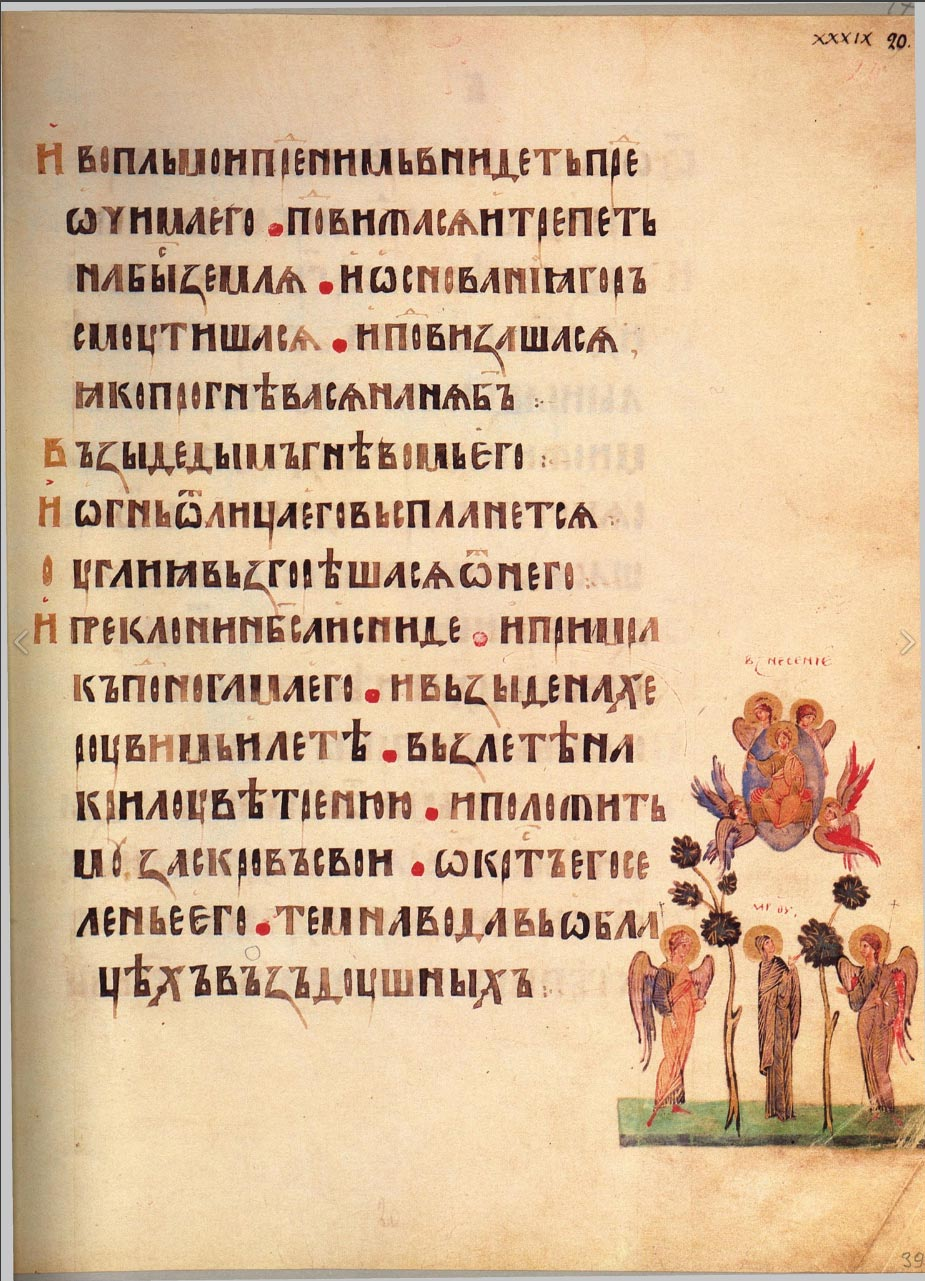 XXXIX 20.
И вопльмоипрⷣенимьвнидетьпрⷣе
ѡчимаего . поⷣвижасѧитрепеть
набыⷭземлѧ . иѡснованїꙗгоръ
смоутишасѧ . ипоⷣвизашасѧ
ꙗкопрогнѣвасѧнанѧб҃ъ :
Възыдедымъгнѣвомьего :
И ѡгньѿлицаеговьспланетсѧ :
Оуглиꙗвьзгорѣшасѧѿнего :
И преклонинб҃саисниде . ипримра
къпоⷣногамаего . ивьзыденахе
роувимьилетѣ . вьзлетѣна
крилоувѣтреню . иположить
мꙋзаскровъсвои . ѡкрⷭтъегосе
леньеего . темнаводавьѡбла
цѣхъвъздоушныхъ :
вꙁнесениѥ
39